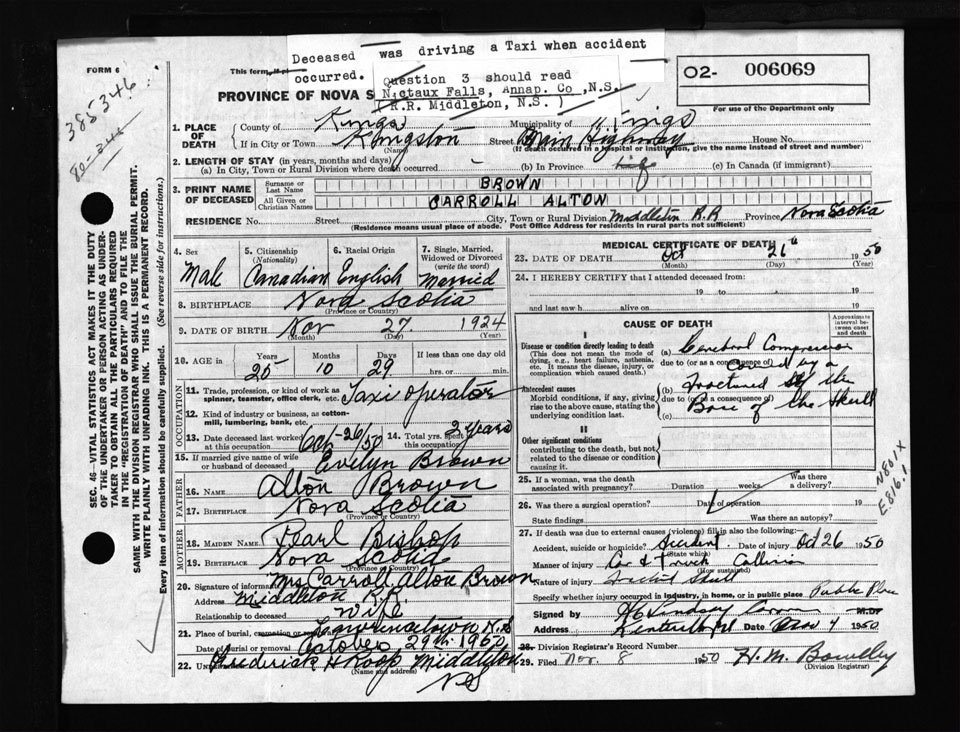 Deceased was driving a Taxi when accident
occurred. Question 3 should read
Nictaux Falls, Annap. Co ,N.S.
( R.R. Middleton, N.S. )
FORM 6
This form,
PROVINCE OF NOVA S
O2- 006069
For use of the Department only
385346
1. PLACE OF DEATH
County of Kings Municipality of Kings
If in City or Town Kingston Street Main Highway House No.
(Name) (If death occurred in a hospital or institution, give the name instead of street and number)
2. LENGTH OF STAY (in years, months and days)
(a) In City, Town or Rural Division where death occurred - (b) In Province life (c) In Canada (if immigrant)
3. PRINT NAME OF DECEASED
Surname or Last Name BROWN
All Given or Christian Names CARROLL ALTON
RESIDENCE No. Street City, Town or Rural Division Middleton R.R Province Nova Scotia
(Residence means usual place of abode. Post Office Address for residents in rural parts not sufficient)
4. Sex Male
5. Citizenship (Nationality) Canadian
6. Racial Origin English
7. Single, Married, Widowed or Divorced (write the word) Married
8. BIRTHPLACE Nova Scotia
(Province or Country)
9. DATE OF BIRTH Nov 27. 1924
(Month) (Day) (Year)
10. AGE in Years 25 Months 10 Days 29 If less than one day old
hrs. or min.
OCCUPATION
11. Trade, profession, or kind of work as spinner, teamster, office clerk, etc. Taxi operator
12. Kind of industry or business, as cotton-mill, lumbering, bank, etc.
13. Date deceased last worked at this occupation Oct-26/50 14. Total yrs. spent in this occupation 2 years
15. If married give name of wife or husband of deceased Evelyn Brown
FATHER
16. NAME Alton Brown
17. BIRTHPLACE Nova Scotia
(Province or Country)
MOTHER
18. MAIDEN NAME Pearl Bishop
19. BIRTHPLACE Nova Scotia
(Province or Country)
20. Signature of informant Mrs Carroll Alton Brown
Address Middleton R.R.
Relationship to deceased Wife
21. Place of burial, cremation or removal Lawrencetown N.S
Date of burial or removal October 29th. 1950
22. Frederick H Roop Middleton
(Name and address)
NS
MEDICAL CERTIFICATE OF DEATH
23. DATE OF DEATH Oct 26th 1950
(Month) (Day) (Year)
24. I HEREBY CERTIFY that I attended deceased from
19 to 19
and last saw h alive on 19
CAUSE OF DEATH
Approximate interval between onset and death
Disease or condition directly leading to death
(This does not mean the mode of dying, e.g., heart failure, asthenia, etc. It means the disease, injury, or complication which caused death.)
(a) Cerebral Compression
due to (or as a consequence of) Caused by a
Antecedent causes
Morbid conditions, if any, giving rise to the above cause, stating the underlying condition last.
(b) fractured of the
due to (or as a consequence of)
(c) Base of the Skull
II
Other significant conditions
contributing to the death, but not related to the disease or condition causing it.
25. If a woman, was the death associated with pregnancy? Duration weeks Was there a delivery?
26. Was there a surgical operation? Date of operation 19
State findings Was there an autopsy?
N801X
E816.1
27. If death was due to external causes (violence) fill in also the following:
Accident, suicide or homicide? Accident. Date of injury Oct 26 1950
(State which)
Manner of injury Car & Truck Collision
(How sustained)
Nature of injury Skull
Specify whether injury occurred in industry, in home, or in public place Public Place
Signed by M.D.
Address Date Nov 4 1950
28. Division Registrar's Record Number
29. Filed Nov. 8 1950 H.M.
(Division Registrar)
SEC. 46—VITAL STATISTICS ACT MAKES IT THE DUTY
OF THE UNDERTAKER OR PERSON ACTING AS UNDER-
TAKER TO OBTAIN ALL THE PARTICULARS REQUIRED
IN THE "REGISTRATION OF DEATH" AND TO FILE THE
SAME WITH THE DIVISION REGISTRAR WHO SHALL ISSUE THE BURIAL PERMIT.
WRITE PLAINLY WITH UNFADING INK. THIS IS A PERMANENT RECORD.
Every item of information should be carefully supplied. (See reverse side for instructions.)